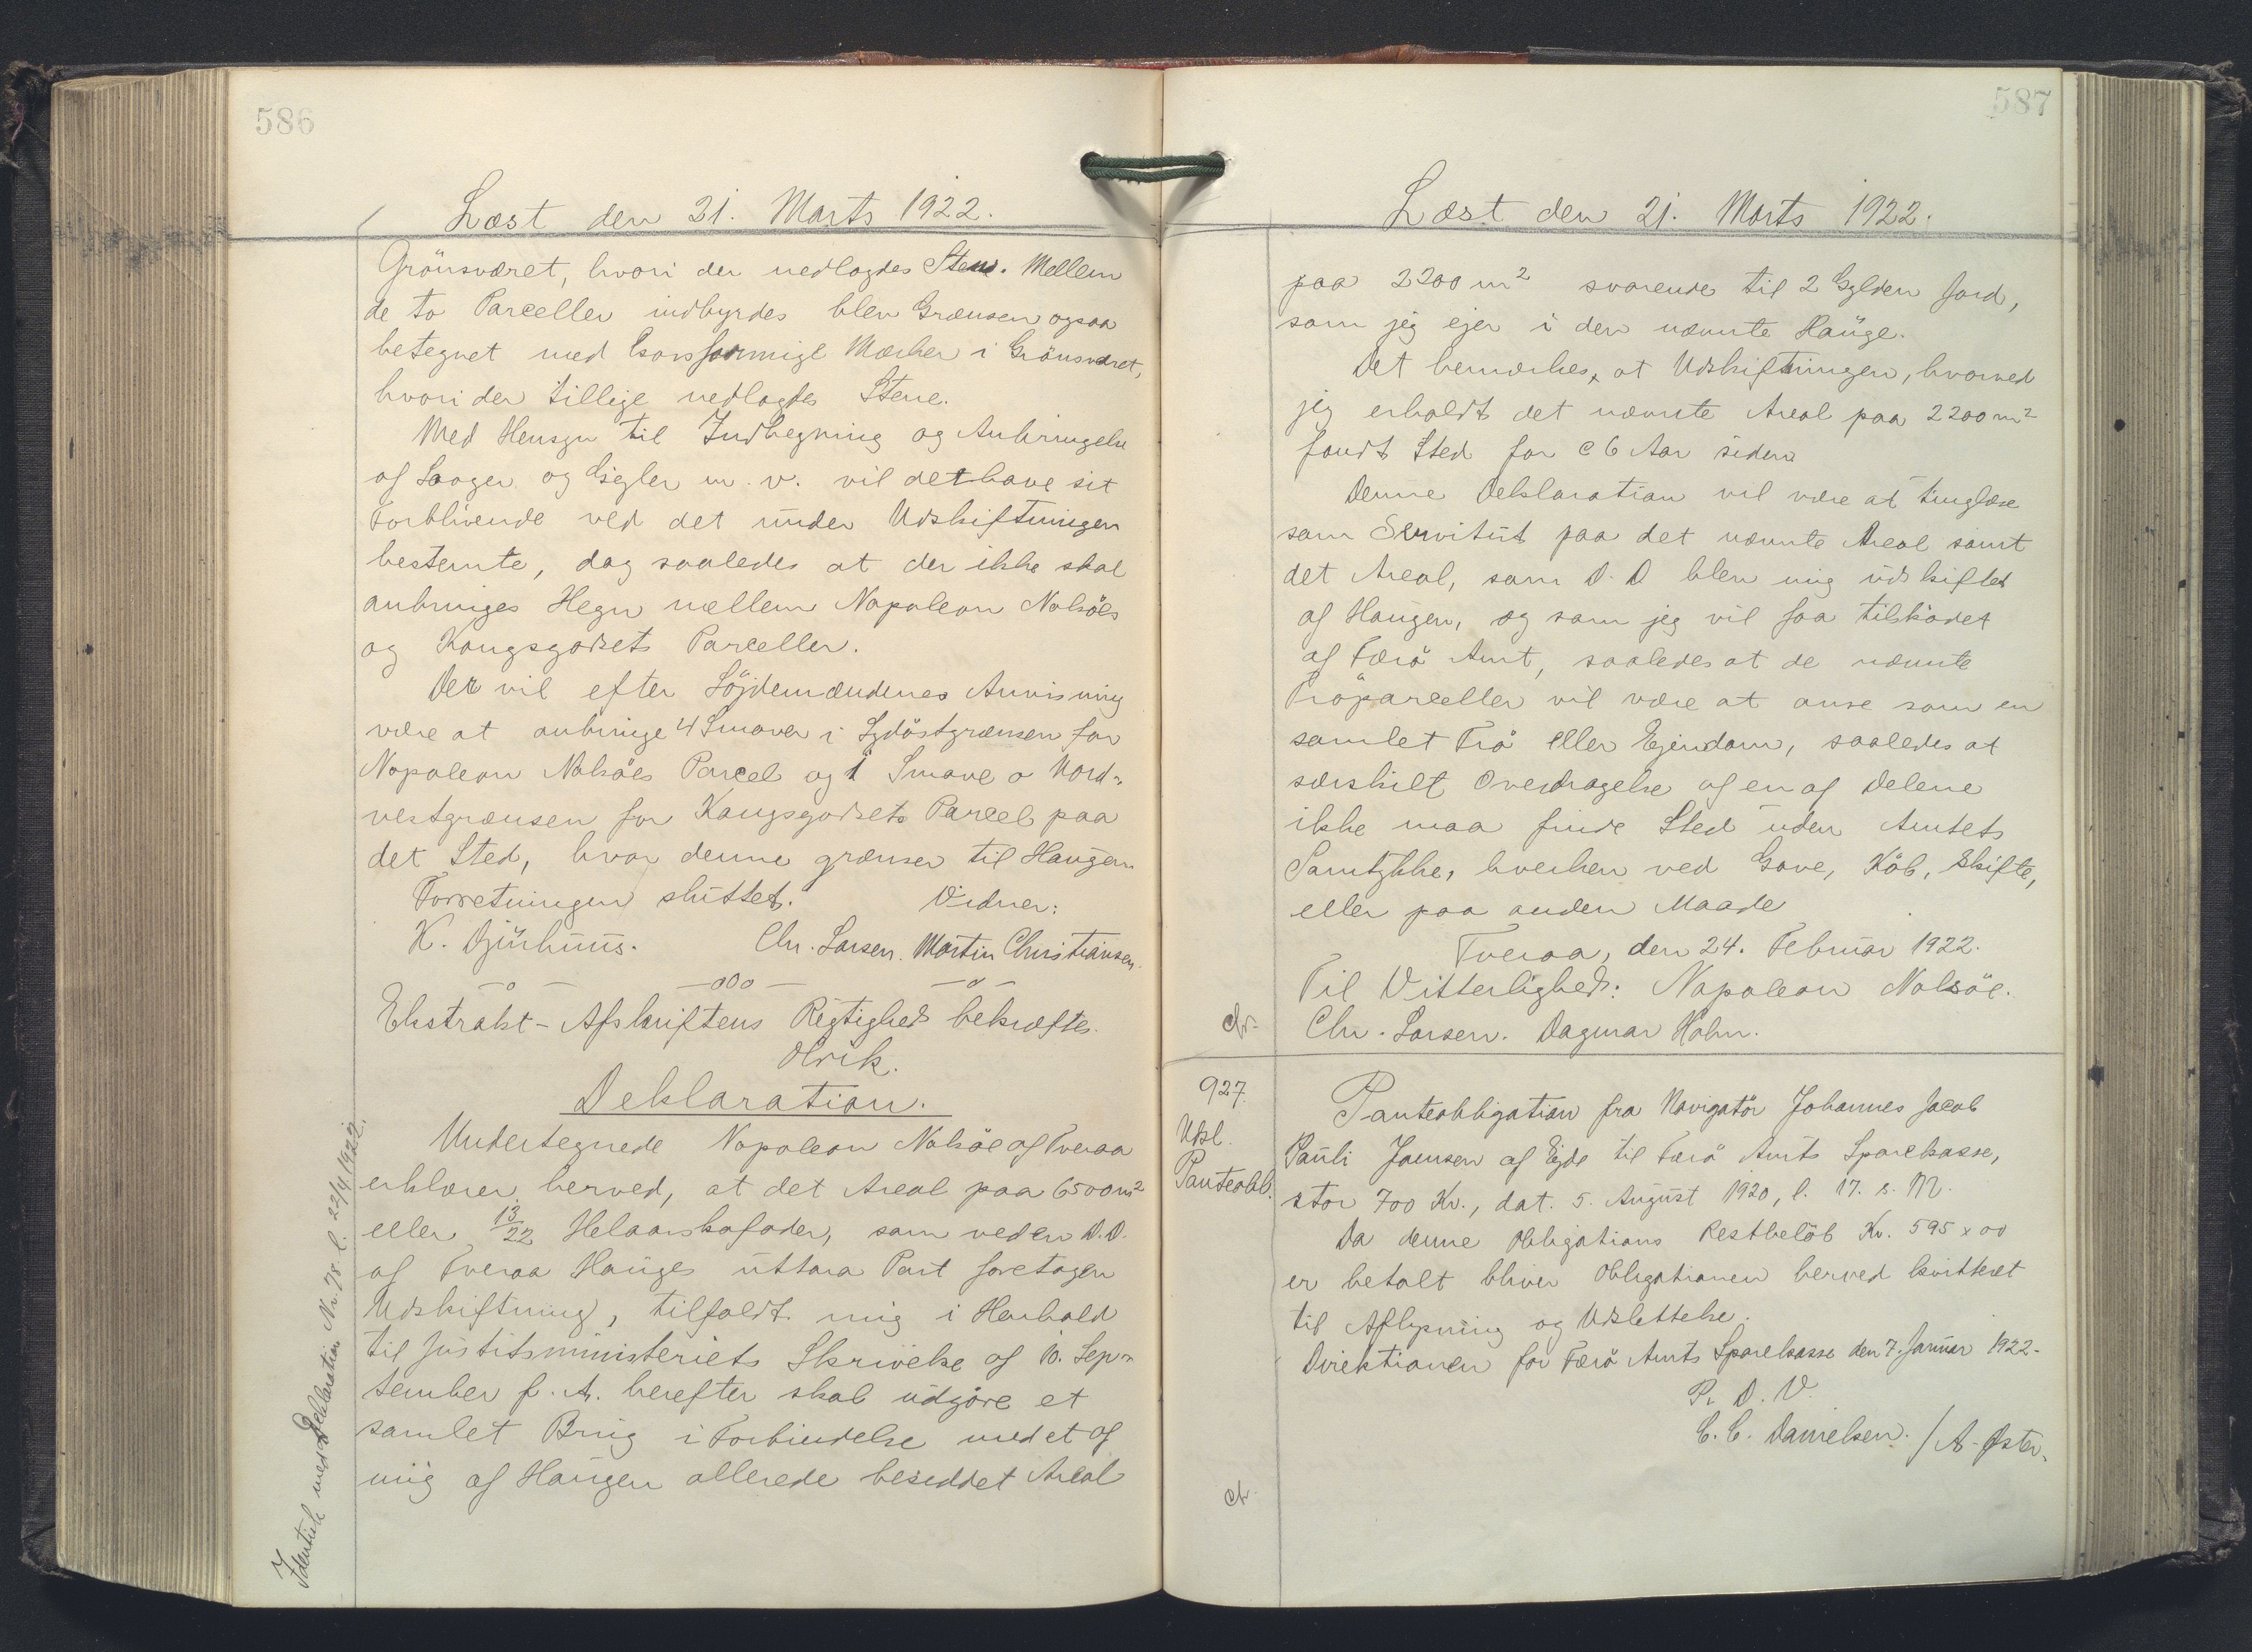 586
Læst den 21. Marts 1922.
Grönsværet, hvori der nedlagdes Stene. Mellem
de to Parceller indbyrdes blev Grænsen ogsaa
betegnet med korsformige Mærker i Grönsværet,
hvori der tillige nedlagdes Stene.
Med Hensyn til Indhegning og Anbringelse
af Laager og Stigler m. v. vil det have sit
Forblivende ved det under Udskiftningen
bestemte, dog saaledes at der ikke skal
anbringes Hegn mellem Napoleon Nolsöes
og Kongsgodsets Parceller.
Der vil efter Löjdemændenes Anvisning
være at anbringe 4 Smaver i Sydöstgrænsen for
Napoleon Nolsöes Parcel og 1 Smave a Nord-
vestgrænsen for Kongsgodsets Parcel paa
det Sted, hvor denne grænser til Haugen
Forretningen sluttet. Vidner:
K. Djurhuus. Chr. Larsen. Martin Christiansen.
—o— —oOo— —o—
Ekstrakt-Afskriftens Rigtighed bekræftes.
Olrik.
Deklaration.
Undertegnede Napoleon Nolsöe af Tveraa
erklærer herved, at det Areal paa 6500 m²
eller 13/22 Helaarskofoder, som ved en D.D.
af Tveraa Hauges uttara Part foretagen
Udskiftning, tilfaldt mig i Henhold
til Justitsministeriets Skrivelse af 10. Sep-
tember f. A. herefter skal udgöre et
samlet Brug i Forbindelse med et af
mig af Haugen allerede besiddet Areal
Identisk med Deklaration Nr. 78 l. 22/4 1922.
587
Læst den 21. Marts 1922.
paa 2200 m² svarende til 2 Gylden Jord,
som jeg ejer i den nævnte Hauge.
Det bemærkes, at Udskiftningen, hvorved
jeg erholdt det nævnte Areal paa 2200 m²
fandt Sted for c 6 Aar siden
Denne Deklaration vil være at tinglæse
som Servitut paa det nævnte Areal samt
det Areal, som D. D blev mig udskiftet
af Haugen, og som jeg vil faa tilskødet
af Færö Amt, saaledes at de nævnte
Tröparceller vil være at anse som en
samlet Trö eller Ejendom, saaledes at
særskilt Overdragelse af en af Delene
ikke maa finde Sted uden Amtets
Samtykke, hverken ved Gave, Köb, Skifte,
eller paa anden Maade
Tveraa, den 24. Februar 1922.
Til Vitterlighed: Napoleon Nolsöe.
Chr. Larsen. Dagmar Hahn.
927.
Udsl.
Panteobl.
Panteobligation fra Navigatör Johannes Jacob
Pauli Joensen af Ejde til Færö Amts Sparekasse,
stor 700 Kr., dat. 5. August 1920, l. 17. s. M.
Da denne Obligations Restbelöb Kr. 595 x 00
er betalt bliver Obligationen herved kvitteret
til Aflysning og Udslettelse.
Direktionen for Færö Amts Sparekasse den 7. Januar 1922.
P. D. V.
C. C. Danielsen. / A. Øster.